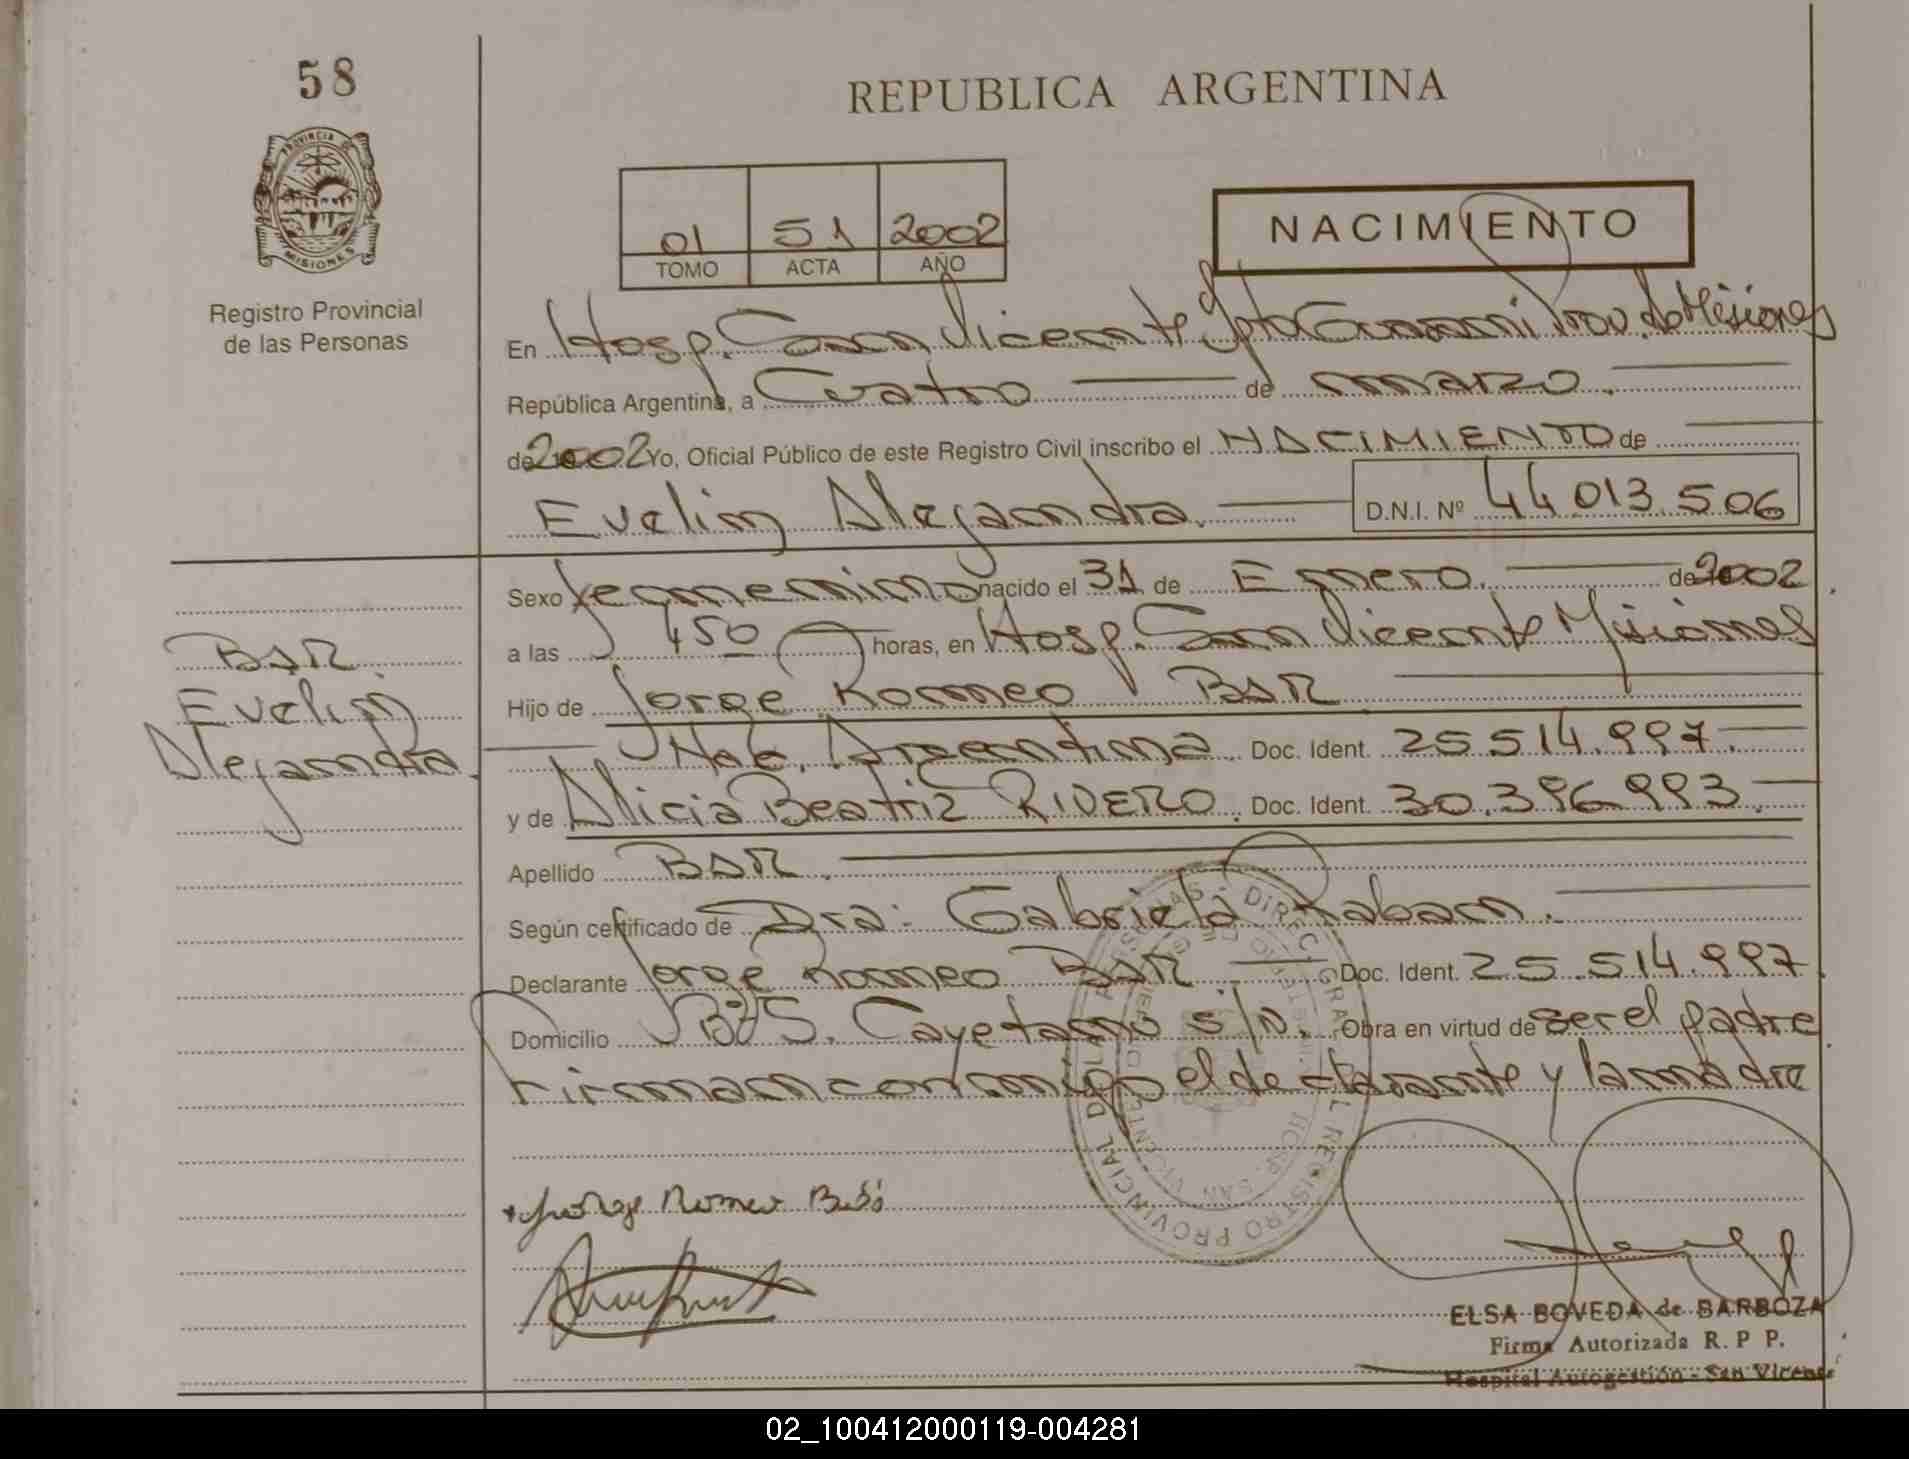 58
REPUBLICA ARGENTINA
PROVINCIA DE
MISIONES
Registro Provincial
de las Personas
01 51 2002
TOMO ACTA AÑO
NACIMIENTO
En Hosp. San Vicente Dpto Guarani Prov. de Misiones
República Argentina, a Cuatro de marzo.
de 2002 Yo, Oficial Público de este Registro Civil inscribo el NACIMIENTO de
Evelin Alejandra. D.N.I. Nº 44 013.506
Sexo femenino nacido el 31 de Enero. de 2002
a las 450 horas, en Hosp. San Vicente Misiones
BAR
Evelin
Alejandra
Hijo de Jorge Romeo BAR
Nac. Argentina. Doc. Ident. 25 514.997.
y de Alicia Beatriz RIVERO. Doc. Ident. 30.396.993.
Apellido BAR.
Según certificado de Dra: Gabriela
Declarante Jorge Romeo BAR Doc. Ident. 25.514.997
Domicilio Bº S. Cayetano s/n. Obra en virtud de ser el padre
Firman conmigo el declarante y la madre
DIRECC GRAL. DEL REGISTRO PROVINCIAL DE LAS PERSONAS
HOSP. SAN VICENTE
Jorge Romeo
ELSA BOVEDA de BARBOZA
Firma Autorizada R. P P.
Hospital Autogestión - San Vicente
02_100412000119-004281